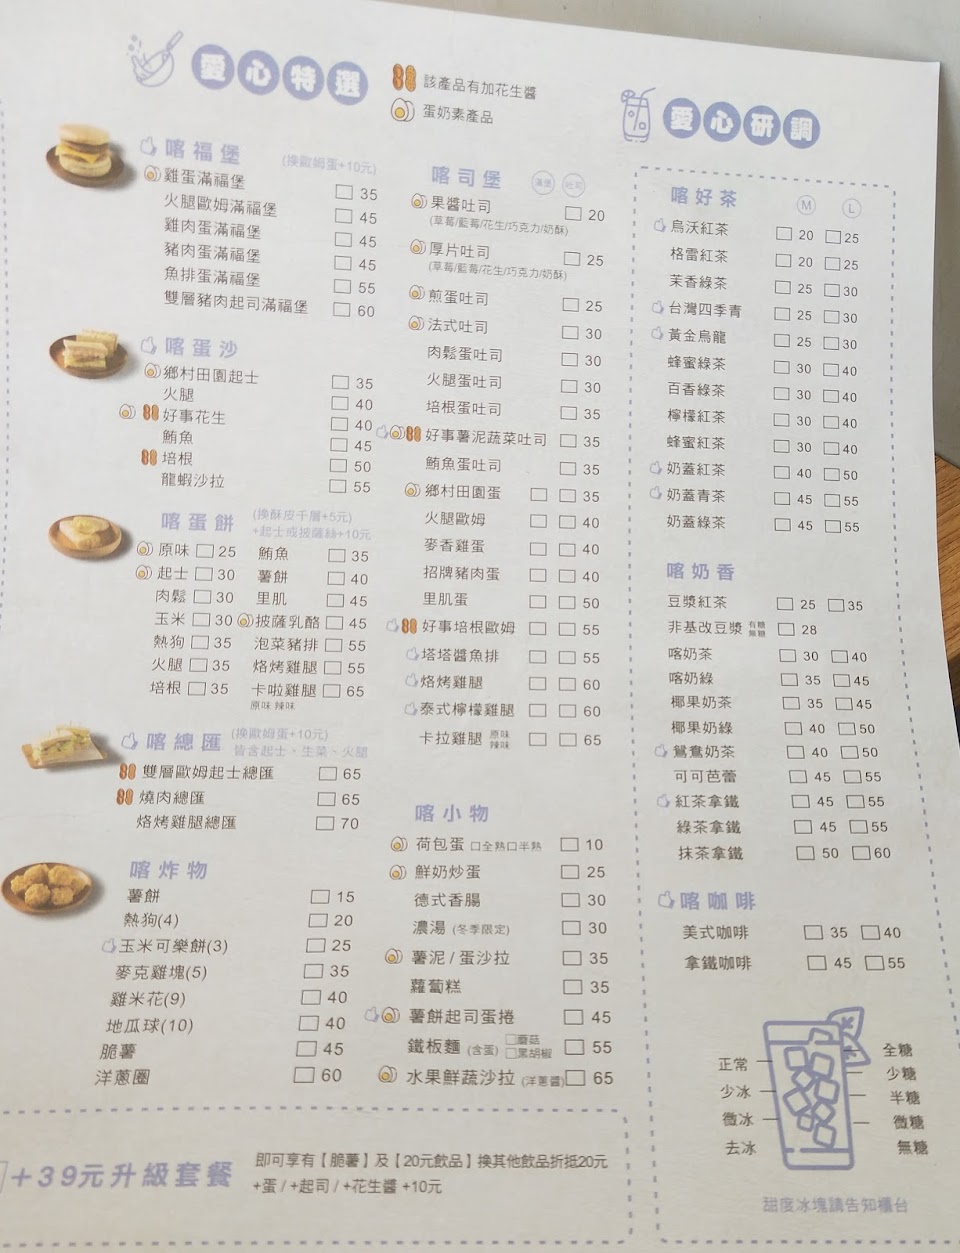 愛心特選
該產品有加花生醬
蛋奶素產品
喀福堡 (換歐姆蛋+10元)
雞蛋滿福堡 35
火腿歐姆滿福堡 45
雞肉蛋滿福堡 45
豬肉蛋滿福堡 45
魚排蛋滿福堡 55
雙層豬肉起司滿福堡 60
喀蛋沙
鄉村田園起士 35
火腿 40
好事花生 40
鮪魚 45
培根 50
龍蝦沙拉 55
喀蛋餅 (換酥皮千層+5元)
+起士或披薩絲+10元)
原味 25 鮪魚 35
起士 30 薯餅 40
肉鬆 30 里肌 45
玉米 30 披薩乳酪 45
熱狗 35 泡菜豬排 55
火腿 35 烙烤雞腿 55
培根 35 卡啦雞腿 65
原味 辣味
喀總匯 (換歐姆蛋+10元)
皆含起士、生菜、火腿
雙層歐姆起士總匯 65
燒肉總匯 65
烙烤雞腿總匯 70
喀炸物
薯餅 15
熱狗(4) 20
玉米可樂餅(3) 25
麥克雞塊(5) 35
雞米花(9) 40
地瓜球(10) 40
脆薯 45
洋蔥圈 60
喀司堡 漢堡 吐司
果醬吐司 20
(草莓/藍莓/花生/巧克力/奶酥)
厚片吐司 25
(草莓/藍莓/花生/巧克力/奶酥)
煎蛋吐司 25
法式吐司 30
肉鬆蛋吐司 30
火腿蛋吐司 30
培根蛋吐司 35
好事薯泥蔬菜吐司 35
鮪魚蛋吐司 35
鄉村田園蛋 35
火腿歐姆 40
麥香雞蛋 40
招牌豬肉蛋 40
里肌蛋 50
好事培根歐姆 55
塔塔醬魚排 55
烙烤雞腿 60
泰式檸檬雞腿 60
卡拉雞腿 原味 辣味 65
喀小物
荷包蛋 口全熟口半熟 10
鮮奶炒蛋 25
德式香腸 30
濃湯 (冬季限定) 30
薯泥/蛋沙拉 35
蘿蔔糕 35
薯餅起司蛋捲 45
鐵板麵 (含蛋) 蘑菇 黑胡椒 55
水果鮮蔬沙拉 (洋蔥醬) 65
愛心研調
喀好茶 M L
烏沃紅茶 20 25
格雷紅茶 20 25
茉香綠茶 25 30
台灣四季青 25 30
黃金烏龍 25 30
蜂蜜綠茶 30 40
百香綠茶 30 40
檸檬紅茶 30 40
蜂蜜紅茶 30 40
奶蓋紅茶 40 50
奶蓋青茶 45 55
奶蓋綠茶 45 55
喀奶香
豆漿紅茶 25 35
非基改豆漿 有糖 無糖 28
喀奶茶 30 40
喀奶綠 35 45
椰果奶茶 35 45
椰果奶綠 40 50
鴛鴦奶茶 40 50
可可芭蕾 45 55
紅茶拿鐵 45 55
綠茶拿鐵 45 55
抹茶拿鐵 50 60
喀咖啡
美式咖啡 35 40
拿鐵咖啡 45 55
正常 全糖
少冰 少糖
半糖
微冰 微糖
去冰 無糖
甜度冰塊請告知櫃台
+39元升級套餐
即可享有【脆薯】及【20元飲品】換其他飲品折抵20元
+蛋/+起司/+花生醬 +10元